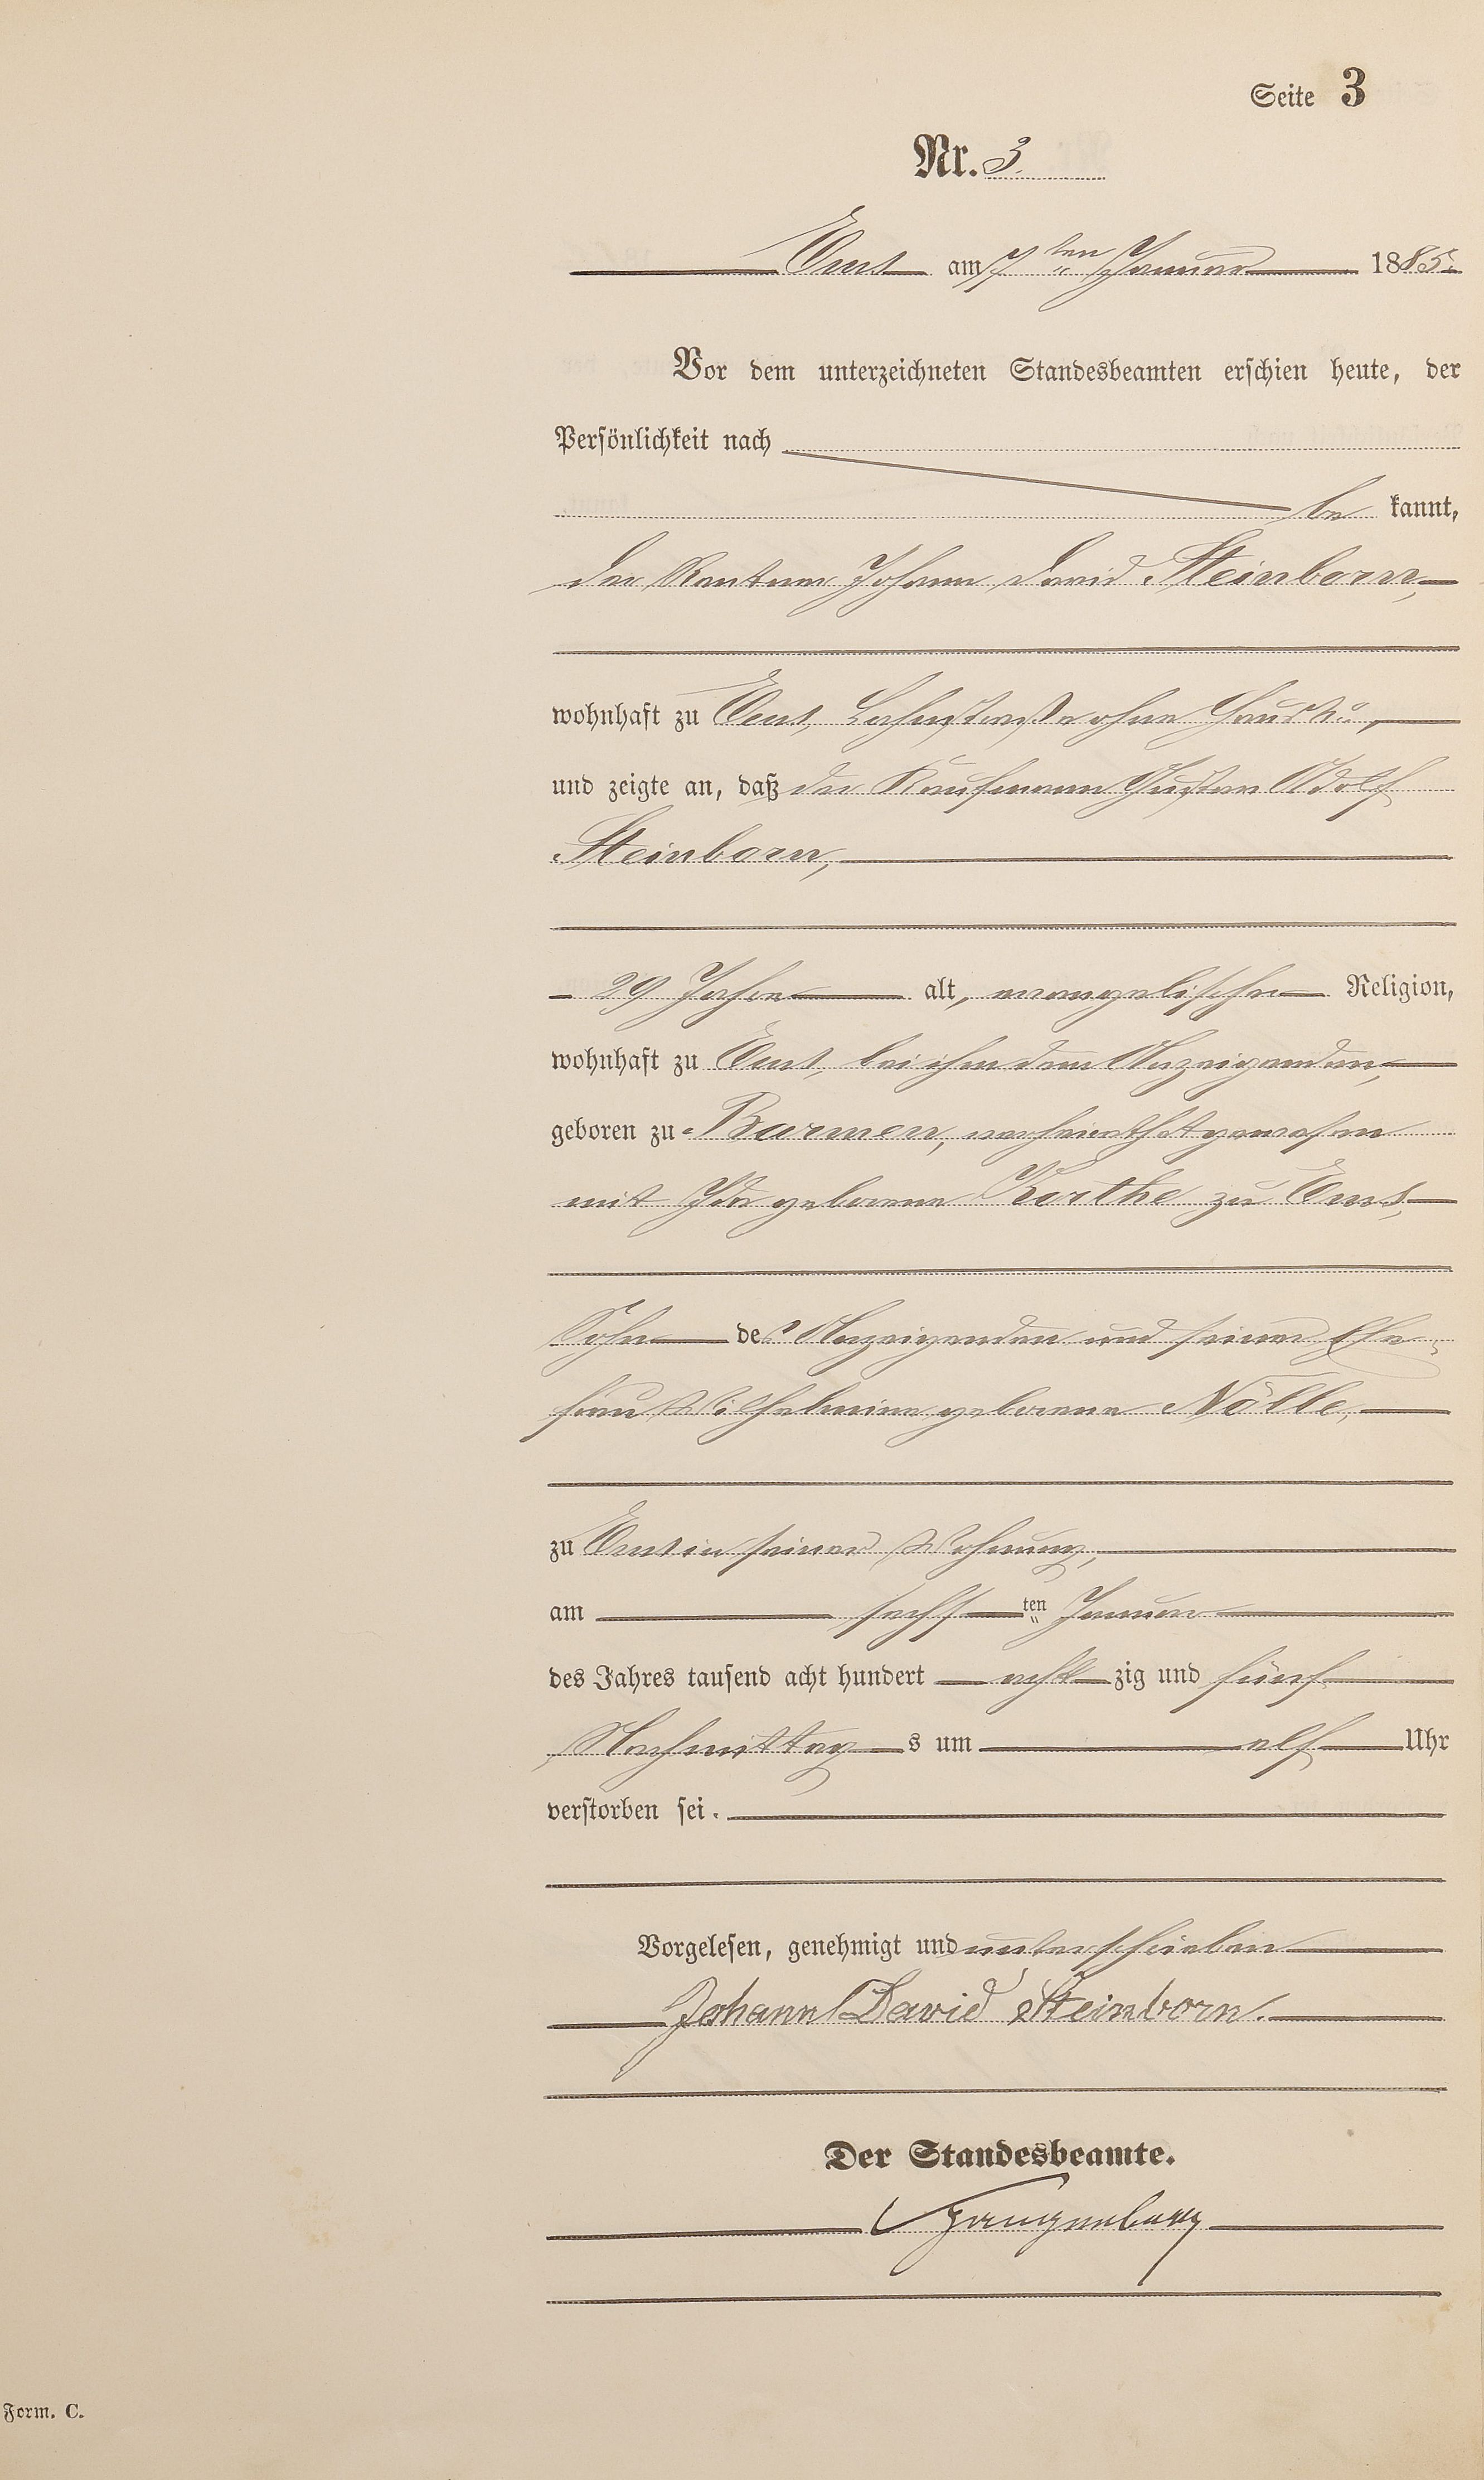 Seite 3
Nr. 3.
Ems am 7ten Januar 1885.
Vor dem unterzeichneten Standesbeamten erschien heute, der
Persönlichkeit nach
be kannt,
der Rentner Johann David Steinborn,
wohnhaft zu Ems, Lahnstraße ohne Haus No,
und zeigte an, daß der Kaufmann Gustav Adolf
Steinborn,
29 Jahre alt, evangelischer Religion,
wohnhaft zu Ems, bei ihm dem Anzeigenden,
geboren zu Barmen, verheirathet gewesen
mit Ida geborene Korthe zu Ems,
Sohn des Anzeigenden und seiner Ehe-
frau Wilhelmine geborene Nölle,
zu Ems in seiner Wohnung,
am sechsten Januar
des Jahres tausend acht hundert achtzig und fünf
Nachmittags um elf Uhr
verstorben sei.
Vorgelesen, genehmigt und unterschrieben
Johann David Steinborn.
Der Standesbeamte.
Form. C.